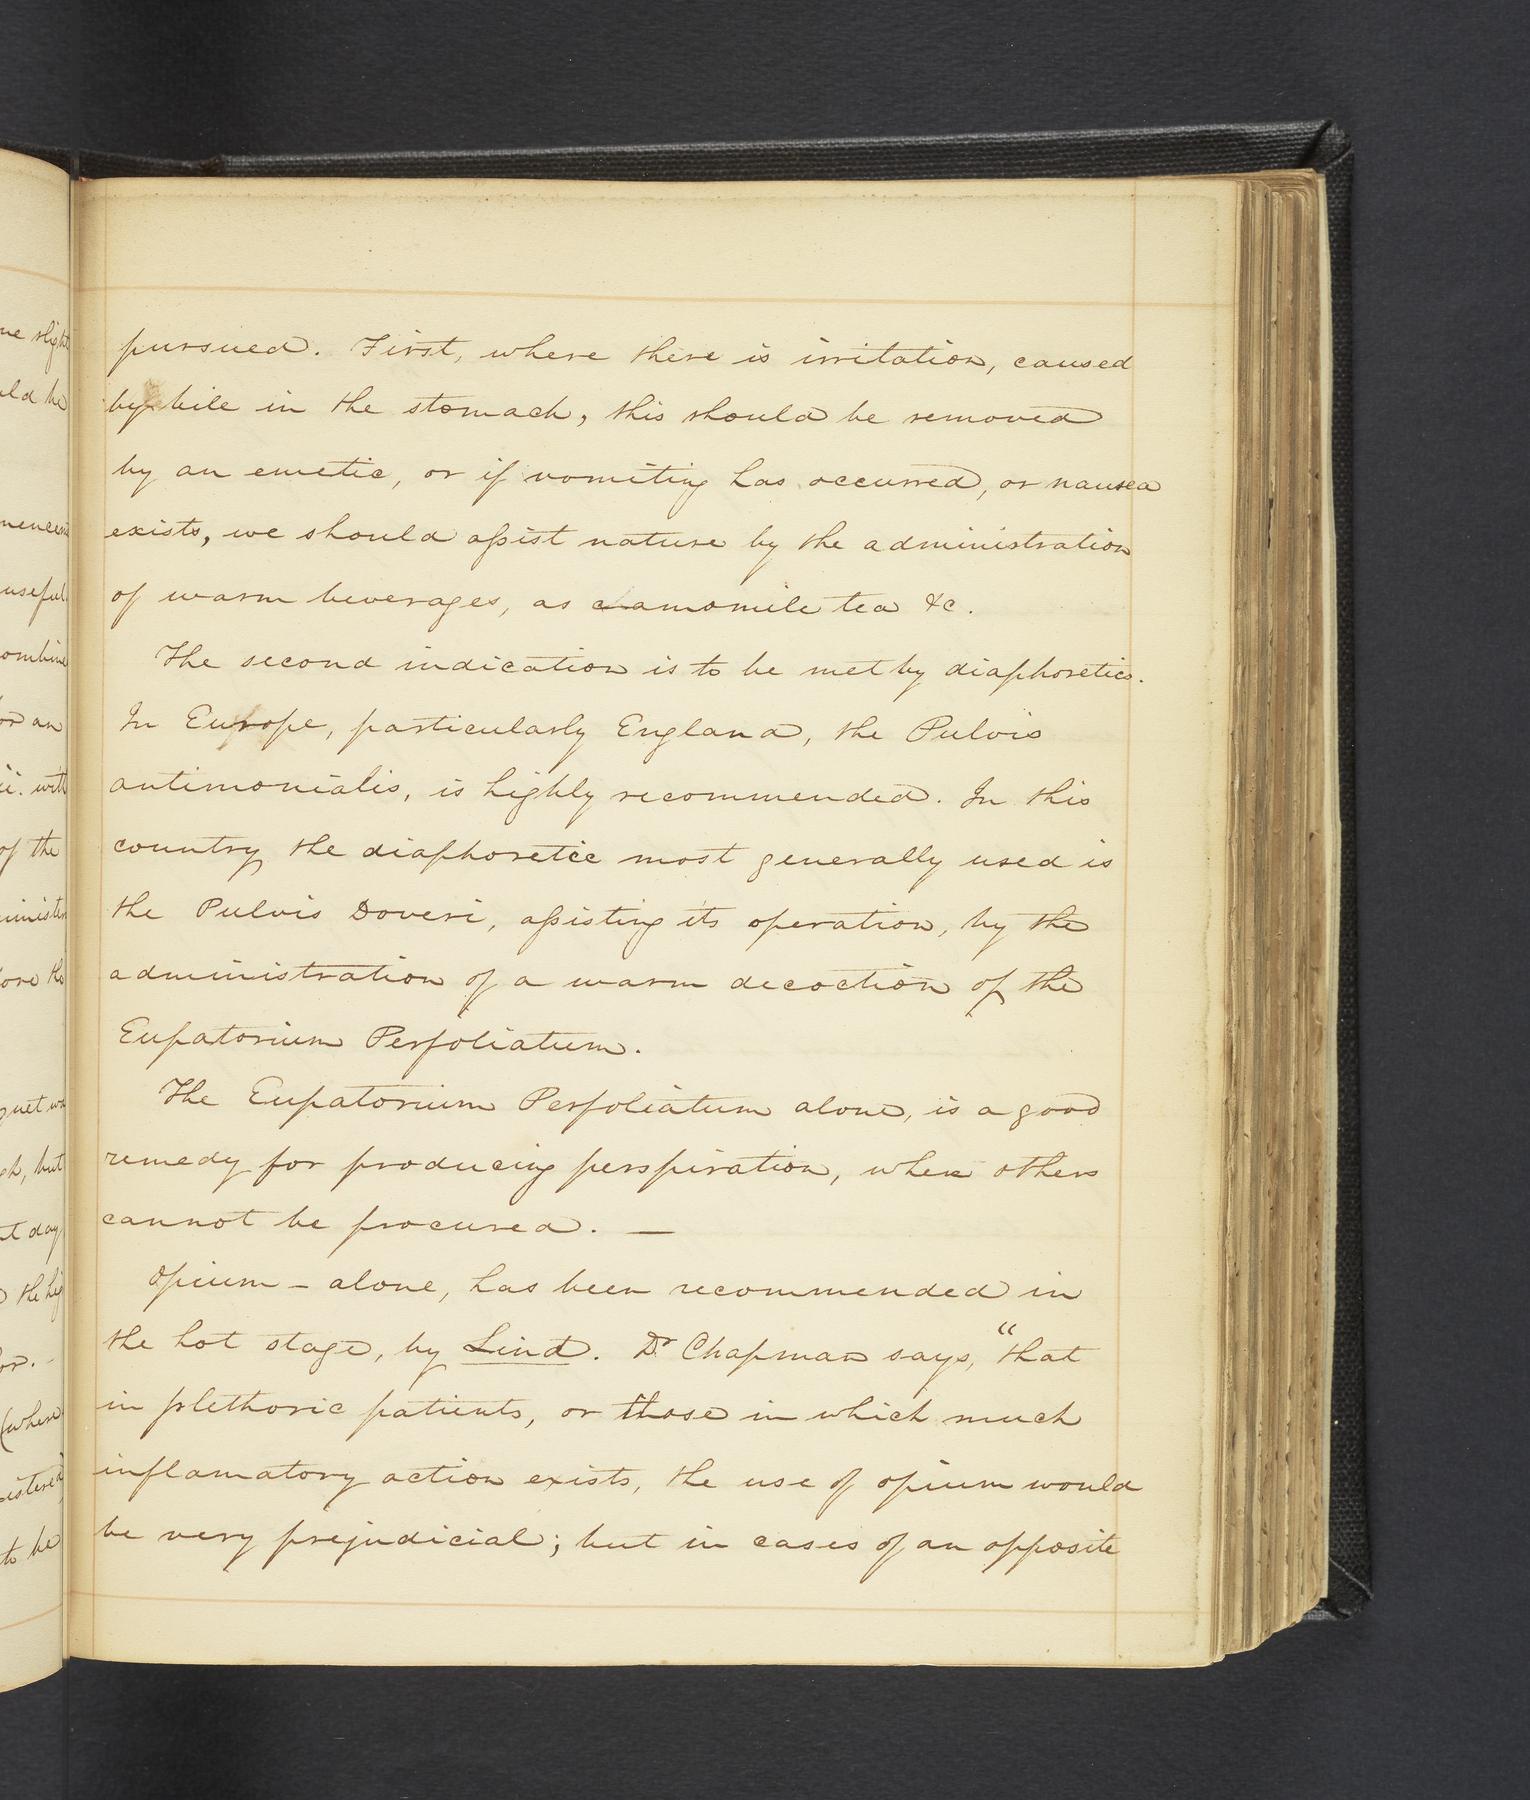 pursued. First, where there is irritation, caused
by bile in the stomach, this should be removed
by an emetic, or if vomiting has occurred, or nausea
exists, we should assist nature by the administration
of warm beverages, as camomile tea &c.
The second indication is to be met by diaphoretics.
In Europe, particularly England, the Pulvis
antimonialis, is highly recommended. In this
country the diaphoretic most generally used is
the Pulvis Doveri, assisting its operation, by the
administration of a warm decoction of the
Eupatorium Perfoliatum.
The Eupatorium Perfoliatum alone, is a good
remedy for producing perspiration, when others
cannot be procured. —
Opium – alone, has been recommended in
the hot stage, by Lind. Dr Chapman says, "that
in plethoric patients, or those in which much
inflamatory action exists, the use of opium would
be very prejudicial; but in cases of an opposite